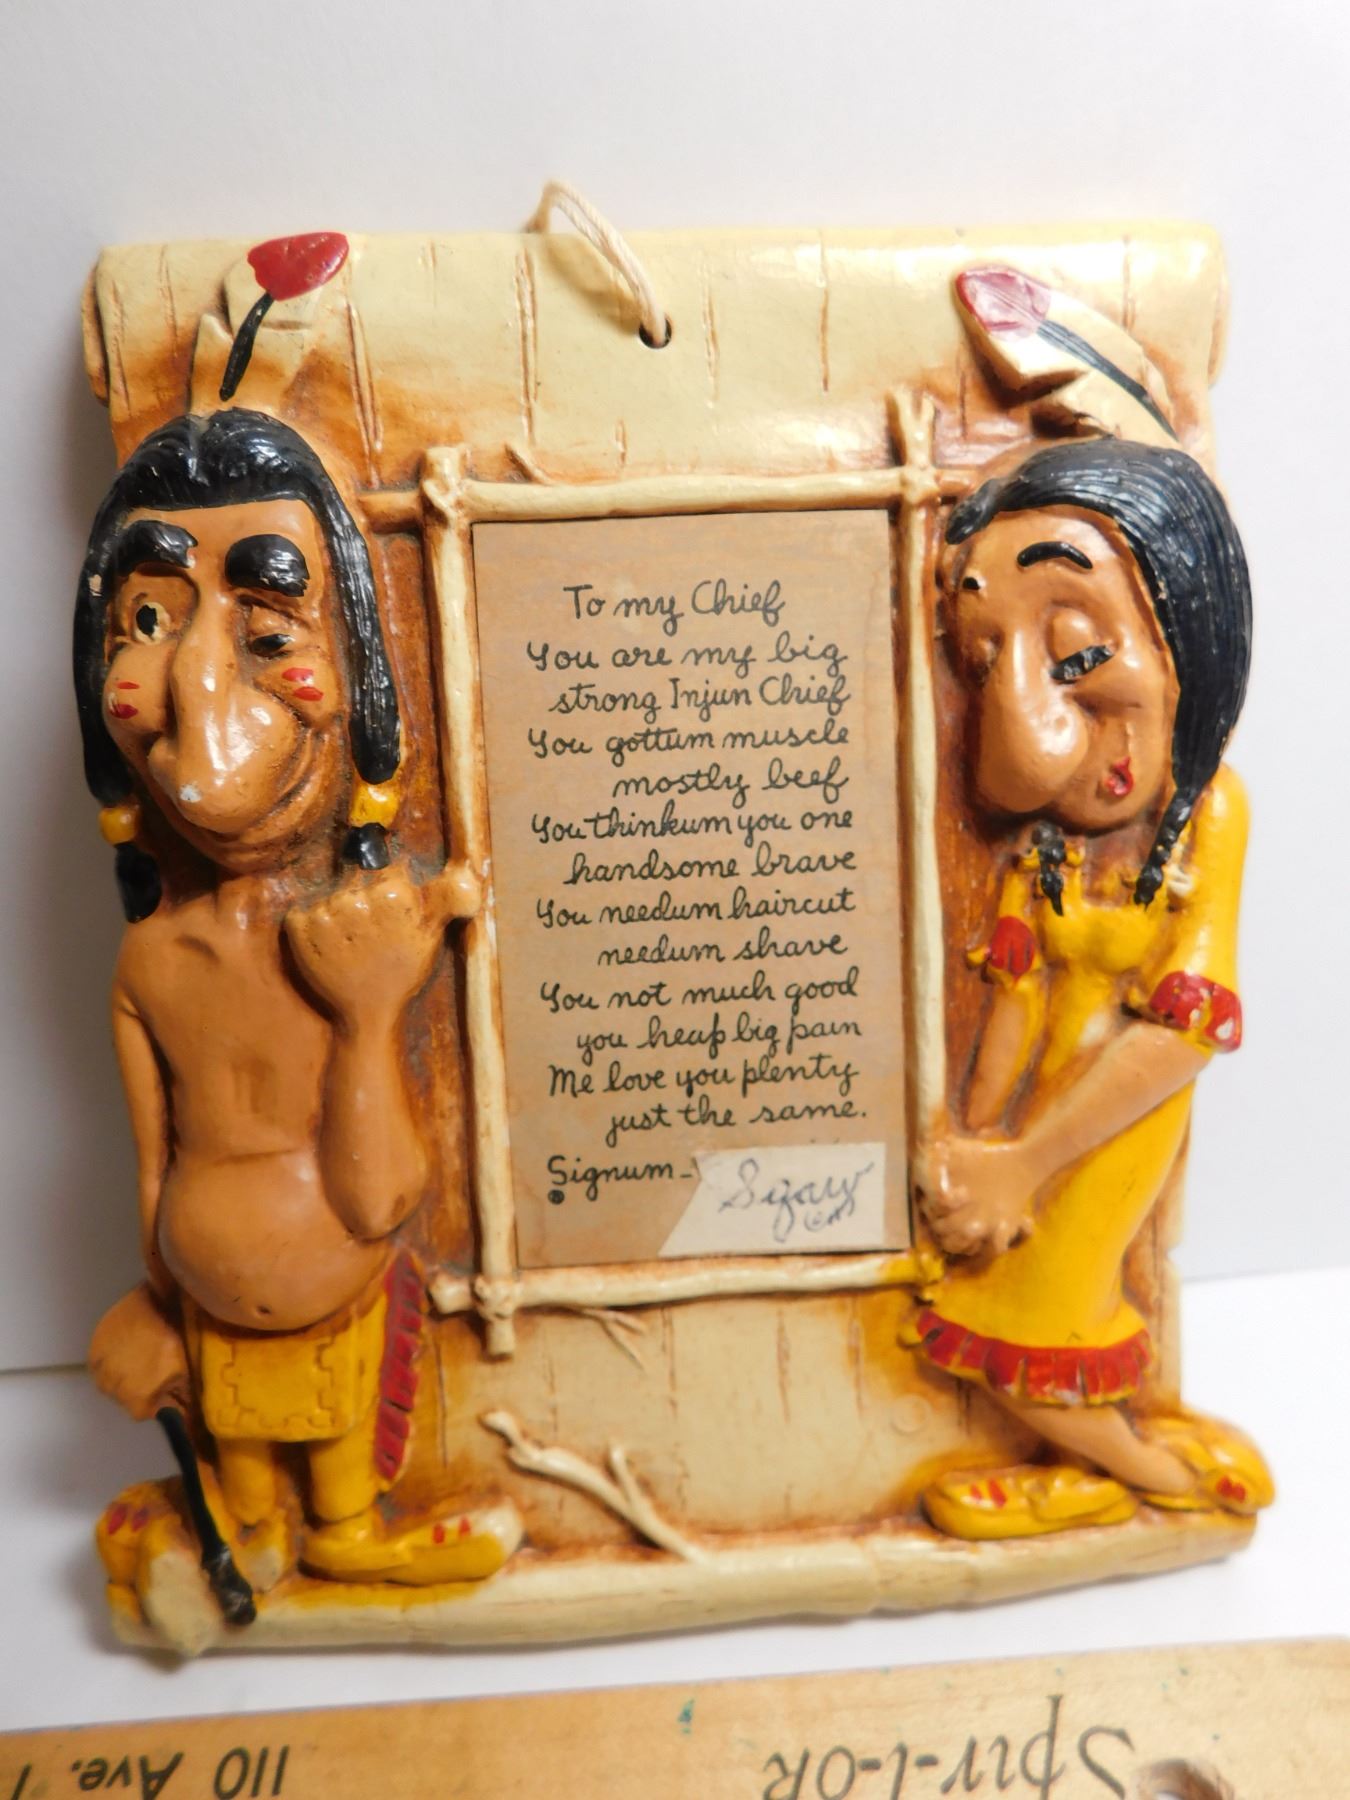 To my Chief
You are my big
strong Injun Chief
You gottum muscle
mostly beef
You thinkum you one
handsome brave
You needum haircut
needum shave
You not much good
you heap big pain
Me love you plenty
just the same.
Signum-
®
110 Ave. 
Spir-i-OR